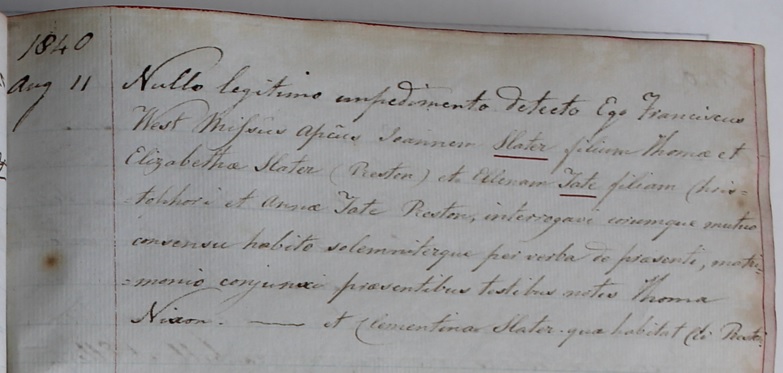 1840
Aug 11 Nullo legitimo impedimento detecto Ego Franciscus
West Missius Apcus Joannem Slater filium Thomæ et
Elizabethæ Slater (Preston) et Ellenam Tate filiam Chris=
=tophori et Annæ Tate Preston, interrogavi eorumque mutuo
consensu habito solemniterque per verba de præsenti, matri=
=monio conjunxi præsentibus testibus notis Thoma
Nixon. — et Clementina Slater quæ habitat